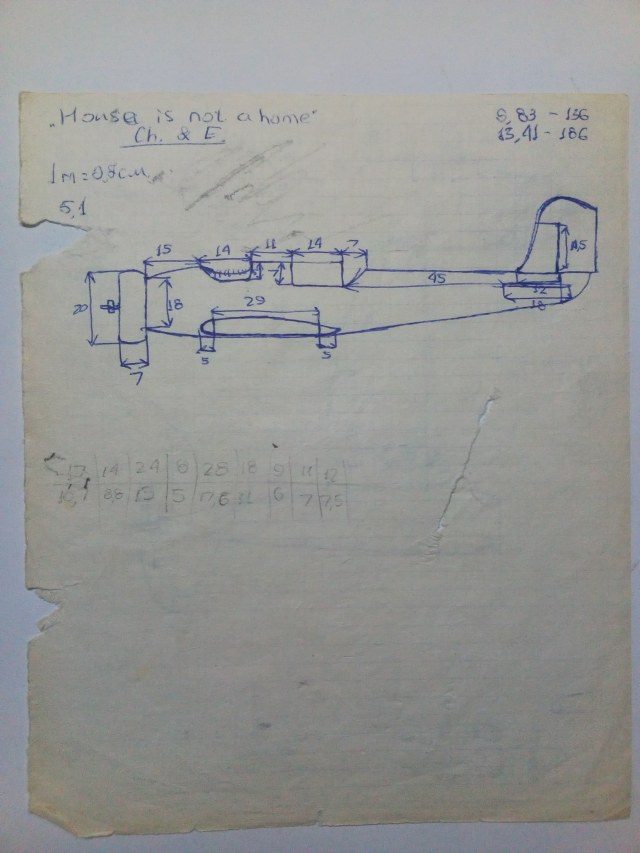 „House is not a home"
Ch. & E
8,83 - 136
13,41 - 186
1м = 0,8см
5,1
15 14 11 14 7
20 18 7 45 12 18
29
5 5
7
17 14 24 8 28 18 9 11 12
8,8 15 5 17,6 11 6 7 7,5